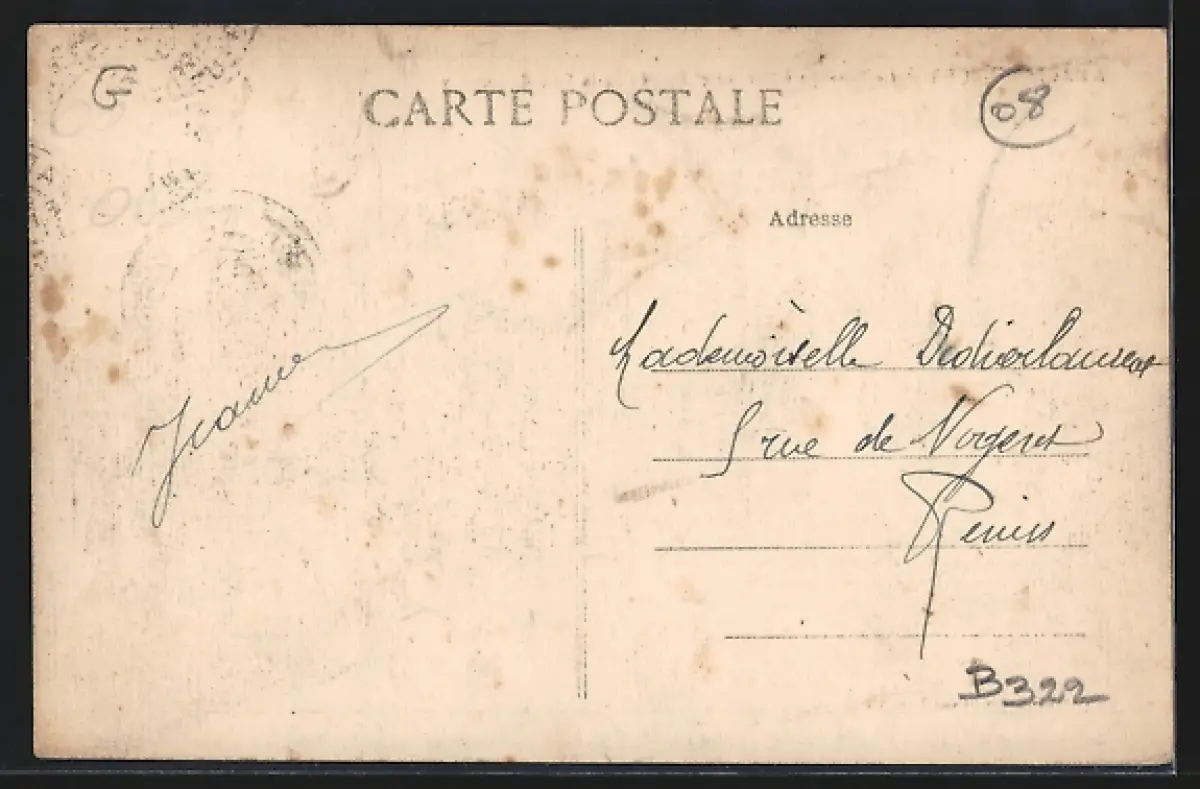 G
CARTE POSTALE
08
Adresse
Mademoiselle Didierlaurent
5 rue de Nogent
Reims
Jeanne
B322